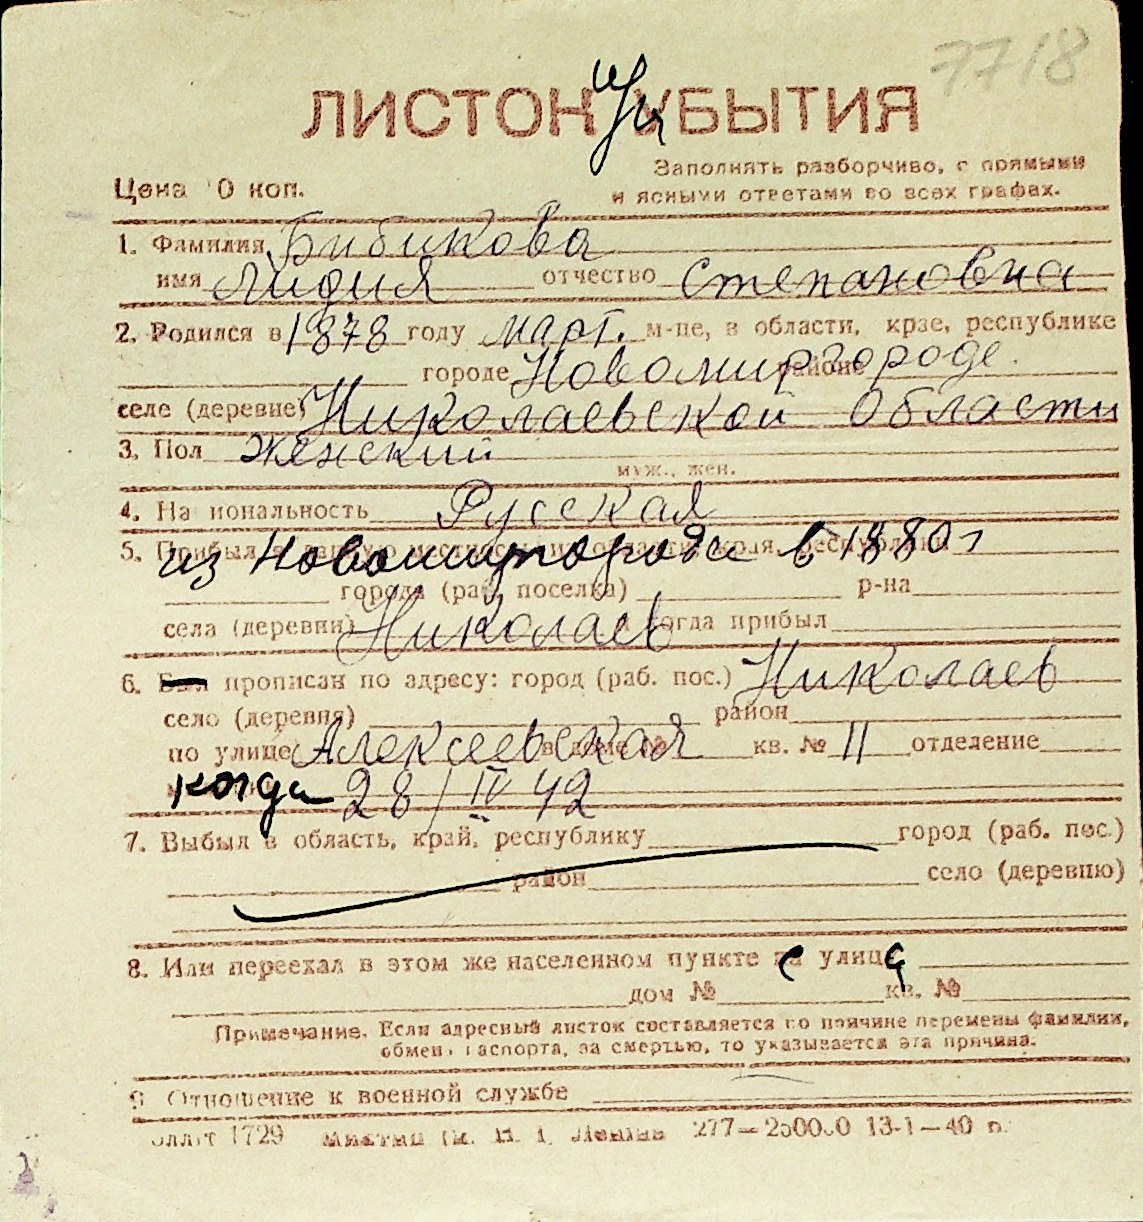 7718
ЛИСТОК УБЫТИЯ
Заполнять разборчиво, с прямыми
Цена 0 коп.
и ясными ответами во всех графах.
1. Фамилия Бибикова
имя Лидия отчество Степановна
2. Родился в 1878 году март. м-це, в области, крае, республике
городе Новомиргороде.
селе (деревне) Николаевской области
3. Пол женский
муж., жен.
4. На иональность Русская
5. из Новомиргорода в 1880 г
города (раб. поселка) р-на
села (деревни) Николаев когда прибыл
6. Был прописан по адресу: город (раб. пос.) Николаев
село (деревня) район
по улице Алексеевская в доме № кв. № 11 отделение
когда 28/IV 42
7. Выбыл в область, край, республику город (раб. пос.)
район село (деревню)
8. Или переехал в этом же населенном пункте с улиц
дом № кв. №
Примечание. Если адресный листок составляется по причине перемены фамилии,
обмен паспорта, за смертью, то указывается эта причина.
9. Отношение к военной службе
1729 277—250000 13-1—40 г.